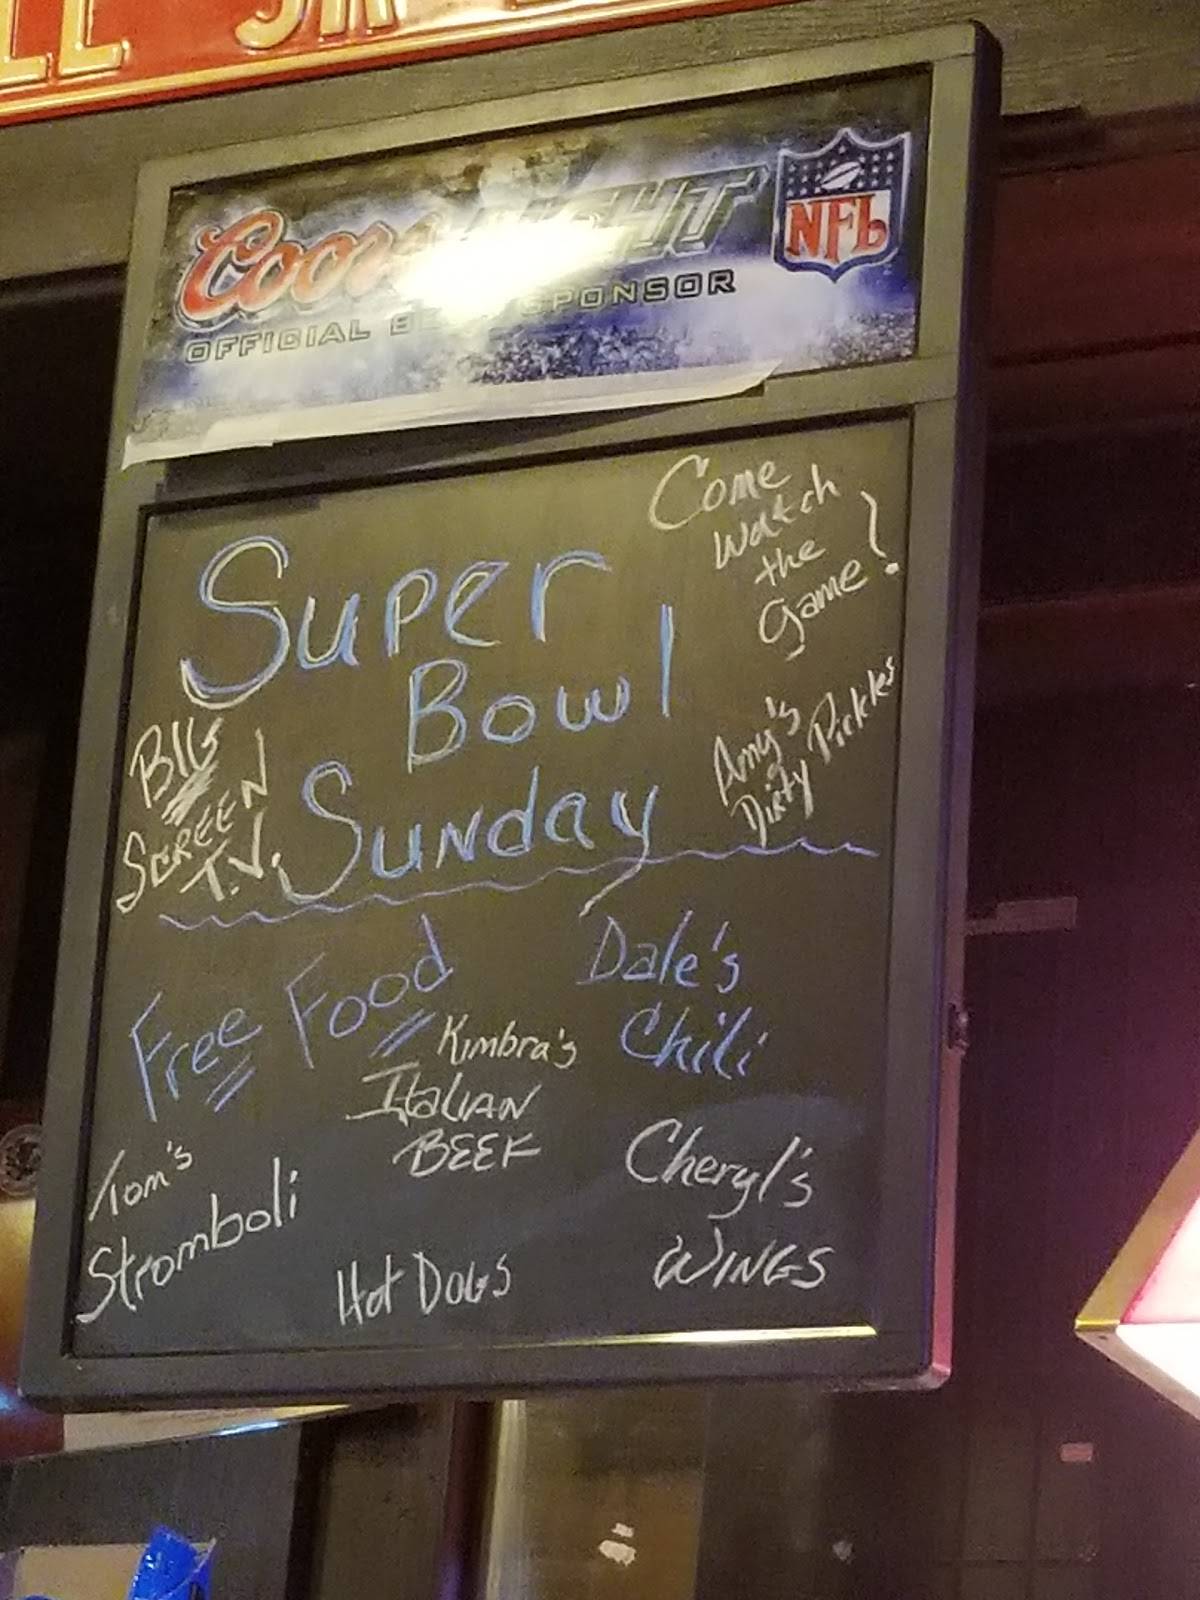 Coors LIGHT
NFL
OFFICIAL BEER SPONSOR
Come
watch
the
game!
Super
Bowl
Sunday
BIG
SCREEN
T.V.
Amy's
Dirty Pickles
Free Food
Dale's
Chili
Kimbra's
ItaLIAN
BEEF
Tom's
Stromboli
Cheryl's
WINGS
Hot DoGS